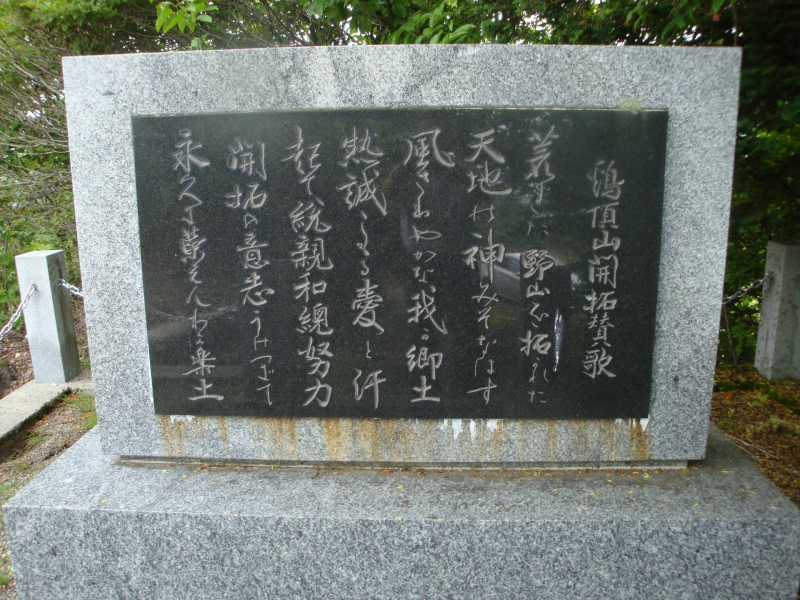 頂山開拓賛歌
野山が拓れた
天地の神みそなはす
風さわやかな我が郷土
熱誠こもる愛と汗
起て統親和總努力
開拓の意志うけついで
永久に栄えんわが楽土